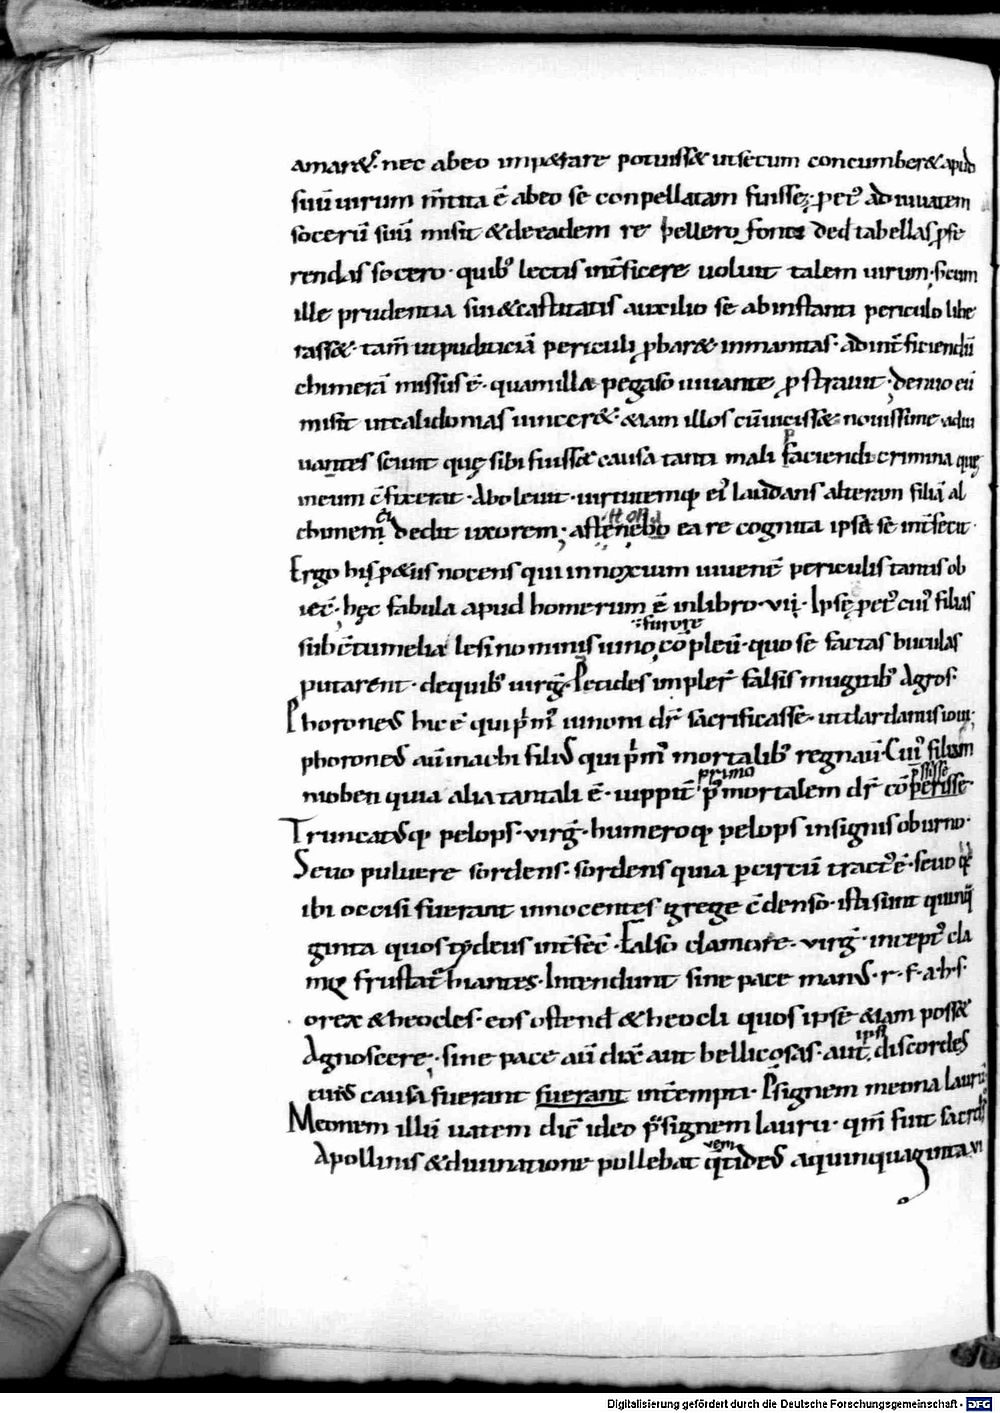 amar&. nec abeo imp&rare potuiss& ut secum concumber& apud
suū uirum m̄tita ē abeo se conpellatam fuisse. pet᷒ ad iuuatem
socerū suū misit & de eadem re bellero fonti ded tabellas pfe
rendas socero. quib᷒ lectis int̄ficere uoluit talem uirum. s; cum
ille prudentia sui & castitatis auxilio se ab instanti periculo libe
rass&. tam̄ ut pudiciciā periculi pbar& inmanitas. ad int̄ficiendū
chimerā missus ē. quam illa pegaso iuuante prostrauit. denuo eū
misit ut calidomas uincer& & iam illos cū uiciss& nouissime adiu
uantes sciuit quę sibi fuiss& causa tanti mali faciendi crimina quę
in eum c̄fixerat. Aboleuit. uirtutemq ei᷒ laudans alteram filiā al
chimem ei dedit uxorem; astenebo hona ea re cognita ipsa se int̄fecit.
Ergo his p&us nocens qui innoxium iuuenē periculis tantis ob
iec̄. hęc fabula apud homerum ē in libro. vij. Ipse pet᷒ cui᷒ filias
sub c̄tumelia lesi nominis iuno furore cōpleū. quo se factas buculas
putarent. de quib᷒ uirg̅. Petides impler̄ falsis mugitib᷒ Agros.
Phoroneus hic ē qui pm᷒ iunoni dr̄ sacrificasse. ut dardanus ioui;
phoroneus aū inachi filius qui pm᷒ mortalib᷒ regnaū. Cui᷒ filiam
nioben quia alia tantali ē. iuppit̄ primo p mortalem dr̄ cōperisse pssisse
Truncatusq pelops. virg̅. humeroq pelops insignis eburno.
Seuo puluere sordens. sordens quia p circū tract᷒ ē. seuo q
ibi occisi fuerant innocentes grege c̄denso. isti sunt quinq
ginta quos tydeus int̄fec̄. Falso clamore. virg̅. incept᷒ cla
mor frustat̄ hiantes. Intendunt sine pace manus. r. f. a. h. s.
orex & heocles. eos ostend & heocli quos ipse & iam poss&
Agnoscere; sine pace aū dix& aut bellicosas. aut ipsi discordes
cuius causa fuerant fuerant int̄empti. Psignem meona lauru.
Meonem illū uatem dic̄ ideo psignem lauru. qm̄ fuit sacerds
Apollinis & diuinatione pollebat quem tideus a quinquaginta vi
Digitalisierung gefördert durch die Deutsche Forschungsgemeinschaft - DFG